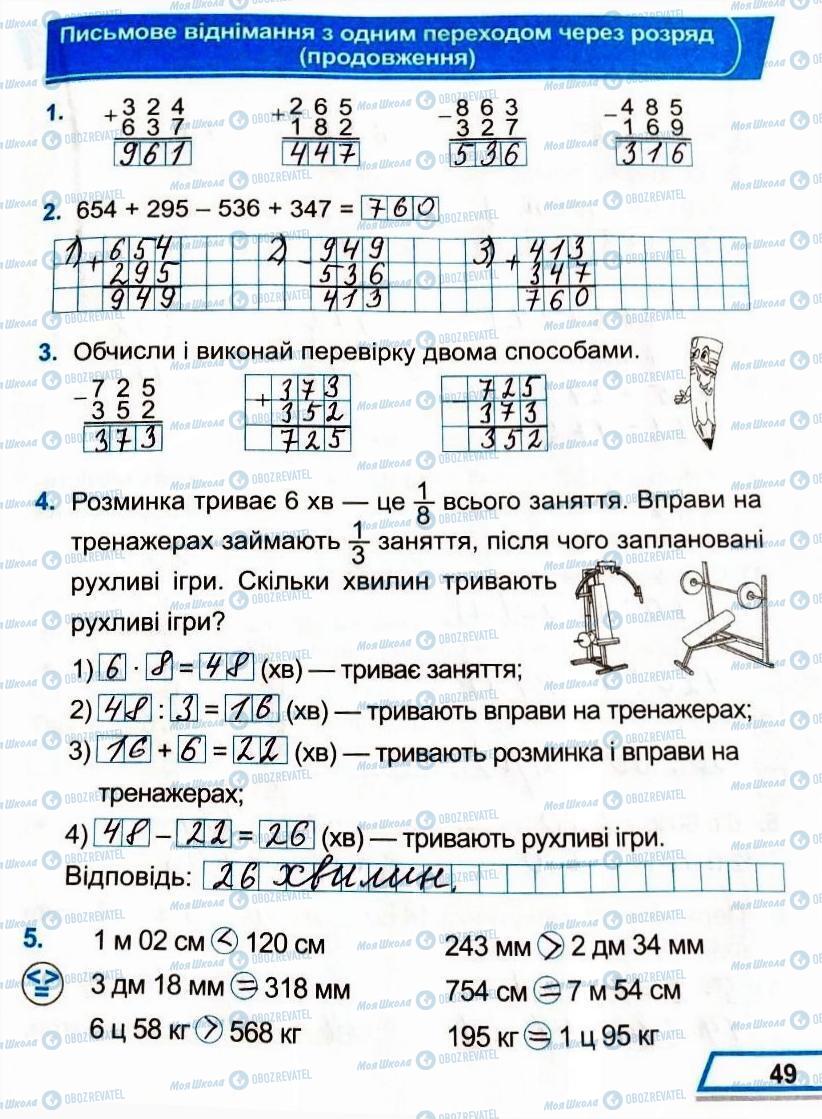 Письмове віднімання з одним переходом через розряд
(продовження)
1. +324 +265 −863 −485
637 182 327 169
961 447 536 316
2. 654 + 295 – 536 + 347 = 760
1) +654 2) −949 3) +413
295 536 347
949 413 760
3. Обчисли і виконай перевірку двома способами.
−725 +373 −725
352 352 373
373 725 352
4. Розминка триває 6 хв — це 1/8 всього заняття. Вправи на
тренажерах займають 1/3 заняття, після чого заплановані
рухливі ігри. Скільки хвилин тривають
рухливі ігри?
1) 6 · 8 = 48 (хв) — триває заняття;
2) 48 : 3 = 16 (хв) — тривають вправи на тренажерах;
3) 16 + 6 = 22 (хв) — тривають розминка і вправи на
тренажерах;
4) 48 – 22 = 26 (хв) — тривають рухливі ігри.
Відповідь: 26 хвилин.
5. 1 м 02 см < 120 см 243 мм > 2 дм 34 мм
<>= 3 дм 18 мм = 318 мм 754 см = 7 м 54 см
6 ц 58 кг > 568 кг 195 кг = 1 ц 95 кг
49
Моя Школа OBOZREVATEL